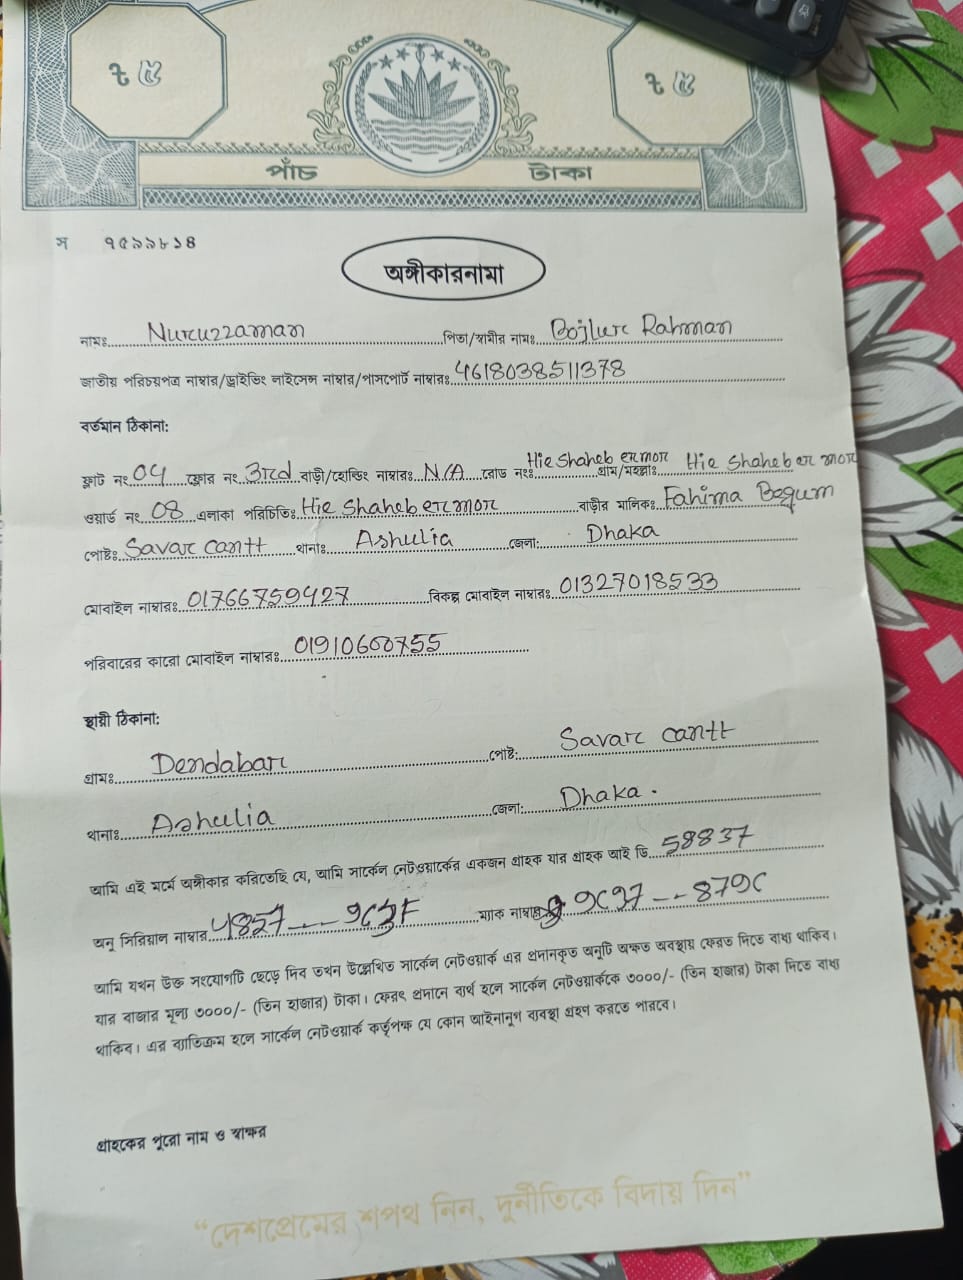 ৳ ৫ ৳ ৫
পাঁচ টাকা
স ৭৫৯৯৮১৪
অঙ্গীকারনামা
নামঃ Nuruzzaman পিতা/স্বামীর নামঃ Bojlur Rahman
জাতীয় পরিচয়পত্র নাম্বার/ড্রাইভিং লাইসেন্স নাম্বার/পাসপোর্ট নাম্বারঃ 4618038511378
বর্তমান ঠিকানা:
ফ্লাট নং 04 ফ্লোর নং 3rd বাড়ী/হোল্ডিং নাম্বারঃ N/A রোড নংঃ Hie Shaheb er mor গ্রাম/মহল্লাঃ Hie Shaheb er mor
ওয়ার্ড নং 08 এলাকা পরিচিতিঃ Hie Shaheb er mor বাড়ীর মালিকঃ Fahima Begum
পোষ্টঃ Savar cantt থানাঃ Ashulia জেলা: Dhaka
মোবাইল নাম্বারঃ 01766759427 বিকল্প মোবাইল নাম্বারঃ 01327018533
পরিবারের কারো মোবাইল নাম্বারঃ 01910600755
স্থায়ী ঠিকানা:
গ্রামঃ Dendabar পোষ্ট: Savar cantt
থানাঃ Ashulia জেলা: Dhaka.
আমি এই মর্মে অঙ্গীকার করিতেছি যে, আমি সার্কেল নেটওয়ার্কের একজন গ্রাহক যার গ্রাহক আই ডি 58837
অনু সিরিয়াল নাম্বার 4857---9C3F ম্যাক নাম্বারঃ 9C97---879C
আমি যখন উক্ত সংযোগটি ছেড়ে দিব তখন উল্লেখিত সার্কেল নেটওয়ার্ক এর প্রদানকৃত অনুটি অক্ষত অবস্থায় ফেরত দিতে বাধ্য থাকিব।
যার বাজার মূল্য ৩০০০/- (তিন হাজার) টাকা। ফেরৎ প্রদানে ব্যর্থ হলে সার্কেল নেটওয়ার্ককে ৩০০০/- (তিন হাজার) টাকা দিতে বাধ্য
থাকিব। এর ব্যতিক্রম হলে সার্কেল নেটওয়ার্ক কর্তৃপক্ষ যে কোন আইনানুগ ব্যবস্থা গ্রহণ করতে পারবে।
গ্রাহকের পুরো নাম ও স্বাক্ষর
“দেশপ্রেমের শপথ নিন, দুর্নীতিকে বিদায় দিন”